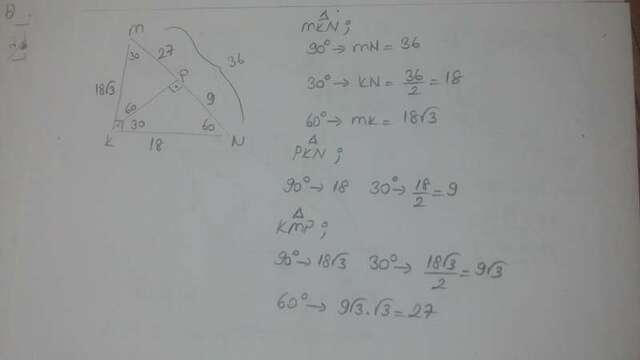 M
30
27
36
P
18√3
60
9
30
60
K
18
N
MKN;
90° → MN = 36
30° → KN = 36/2 = 18
60° → MK = 18√3
PKN;
90° → 18 30° → 18/2 = 9
KMP;
90° → 18√3 30° → 18√3/2 = 9√3
60° → 9√3.√3 = 27